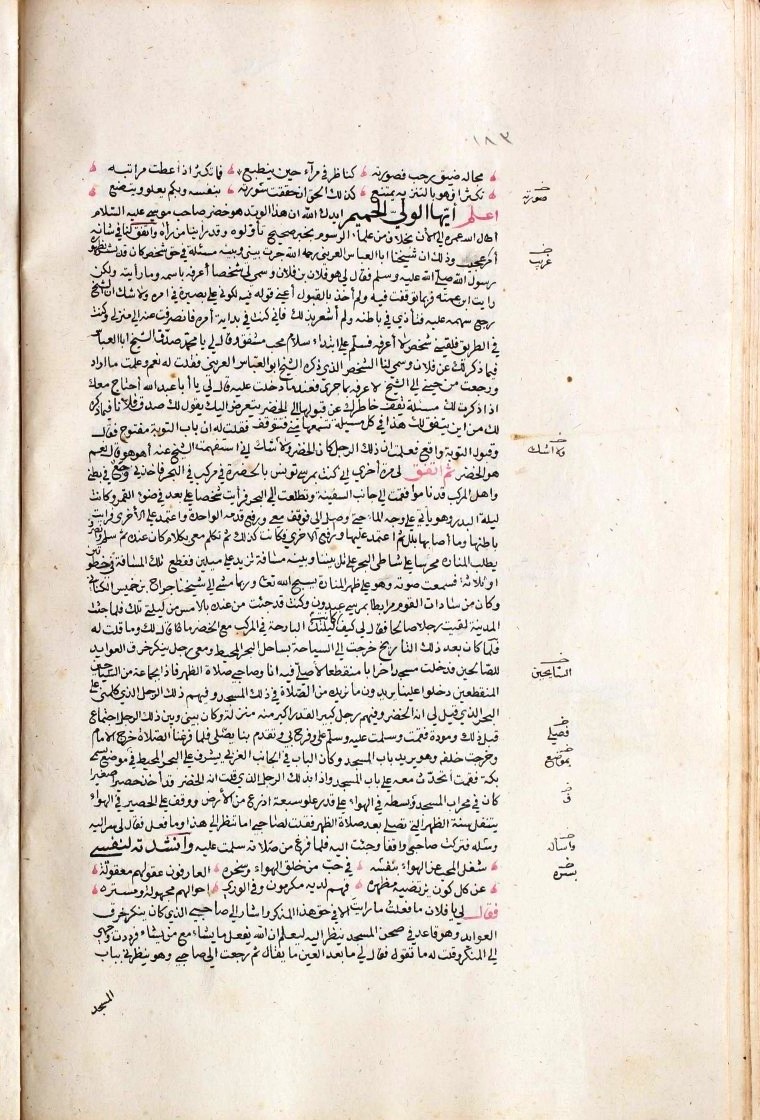 ١٨٣
محاله ضيق رحب فصورته كناظر في مرآء حين ينطبع فما تكثر اذ أعطت مراتبه
تكثرا فهو بالتنزيه يمتنع كذلك الحق ان حققت سورته بنفسه وبكم يعلو ويتضع
اعلم أيها الولي الحميم ايدك الله ان هذا الوتد هو خضر صاحب موسى عليه السلام
اطال الله عمره الى الآن بخلاف من علماء الرسوم بخبر صحيح تأولوه وقد راينا من رآه واتفق لنا في شانه
أمر عجيب وذلك ان شيخنا ابا العباس العريبي رحمه الله جرت بيني وبينه مسئلة في حق شخص كان قد بشر بظهوره
رسول الله صلى الله عليه وسلم فقال لي هو فلان بن فلان وسمى لي شخصا أعرفه باسمه وما رأيته ولكن
رايت ابن عمته فربما توقفت فيه ولم آخذ بالقبول أعني قوله فيه لكوني على بصيرة في امره ولا شك ان الشيخ
رجع سهمه عليه فتأذى في باطنه ولم أشعر بذلك فاني كنت في بداية أمري فانصرفت عنه الى منزلي وكنت
في الطريق فلقيني شخص لا أعرفه فسلم علي ابتداء سلام محب مشفق وقال لي يا محمد صدق الشيخ ابا العباس
فيما ذكر لك عن فلان وسمى لنا الشخص الذي ذكره الشيخ ابو العباس العريبي فقلت له نعم وعلمت ما اراد
ورجعت من حيني الى الشيخ لاعرفه بما جرى فعندما دخلت عليه قال لي يا أبا عبد الله أحتاج معك
اذا ذكرت لك مسئلة يقف خاطرك عن قبولها الى الخضر يتعرض اليك يقول لك صدق فلانا فيما ذكره
لك من اين يتفق لك هذا في كل مسئلة تسمعها مني فتتوقف فقلت له ان باب التوبة مفتوح فقال
وقبول التوبة واقع فعلمت ان ذلك الرجل كان الخضر ولا شك اني استفهمت الشيخ عنه أهو هو قال نعم
هو الخضر ثم اتفق لي مرة أخرى اني كنت بمرسى تونس بالحضرة في مركب في البحر فاخذني وجع في بطني
واهل المركب قد ناموا فقمت الى جانب السفينة وتطلعت الى البحر فرأيت شخصا على بعد في ضوء القمر وكانت
ليلة البدر وهو يأتي على وجه الماء حتى وصل الي فوقف معي ورفع قدمه الواحدة واعتمد على الأخرى فرأيت
باطنها وما أصابها بلل ثم اعتمد عليها ورفع الاخرى فكانت كذلك ثم تكلم معي بكلام كان عنده ثم سلم وانصرف
يطلب المنارة محرسا على شاطئ البحر على تل بيننا وبينه مسافة تزيد على ميلين فقطع تلك المسافة في خطوتين
او ثلاثة فسمعت صوته وهو على ظهر المنارة يسبح الله تعالى وربما مشى الى شيخنا جراح بن خميس الكتاني
وكان من سادات القوم مرابطا بمرسى عيدون وكنت قد جئت من عنده بالأمس من ليلتي تلك فلما جئت
المدينة لقيت رجلا صالحا فقال لي كيف كانت ليلتك البارحة في المركب مع الخضر ما قال لك وما قلت له
فلما كان بعد ذلك التاريخ خرجت الى السياحة بساحل البحر المحيط ومعي رجل ينكر خرق العوايد
للصالحين فدخلت مسجدا خرابا منقطعا لأصلي فيه انا وصاحبي صلاة الظهر فاذا بجماعة من السياحين
المنقطعين دخلوا علينا يريدون ما نريده من الصلاة في ذلك المسجد وفيهم ذلك الرجل الذي كلمني على
البحر الذي قيل لي انه الخضر وفيهم رجل كبير القدر اكبر منه منزلة وكان بيني وبين ذلك الرجل اجتماع
قبل ذلك ومودة فقمت وسلمت عليه وسلم علي وفرح بي وتقدم بنا يصلي فلما فرغنا الصلاة خرج الامام
وخرجت خلفه وهو يريد باب المسجد وكان الباب في الجانب الغربي يشرف على البحر المحيط في موضع يسمى
بكة فقمت أتحدث معه على باب المسجد واذا بذلك الرجل الذي قلت انه الخضر قد أخذ حصيرا صغيرا
كان في محراب المسجد وبسطه في الهواء على قدر علو سبعة اذرع من الأرض ووقف على الحصير في الهواء
يتنفل سنة الظهر التي تصلى بعد صلاة الظهر فقلت لصاحبي اما تنظر الى هذا وما فعل فقال لي سر اليه
وسله فتركت صاحبي واقفا وجئت اليه فلما فرغ من صلاته سلمت عليه وانشدته لنفسي
شغل المحب عن الهواء بنفسه في حب من خلق الهواء وسخره العارفون عقولهم معقولة
عن كل كون يرتضيه مطهره فهم لديه مكرمون وفي الورى احوالهم مجهولة ومستره
فقال لي يا فلان ما فعلت ما رايت الا في حق هذا المنكر واشار الى صاحبي الذي كان ينكر خرق
العوايد وهو قاعد في صحن المسجد ينظر اليه ليعلم ان الله يفعل ما يشاء مع من يشاء فرددت وجهي
الى المنكر وقلت له ما تقول فقال لي ما بعد العين ما يقال ثم رجعت الى صاحبي وهو ينظرني بباب
المسجد
صورته
غريب
ولا اشك
السايحين
فصلي
بموضع
في
واسأله
بسره